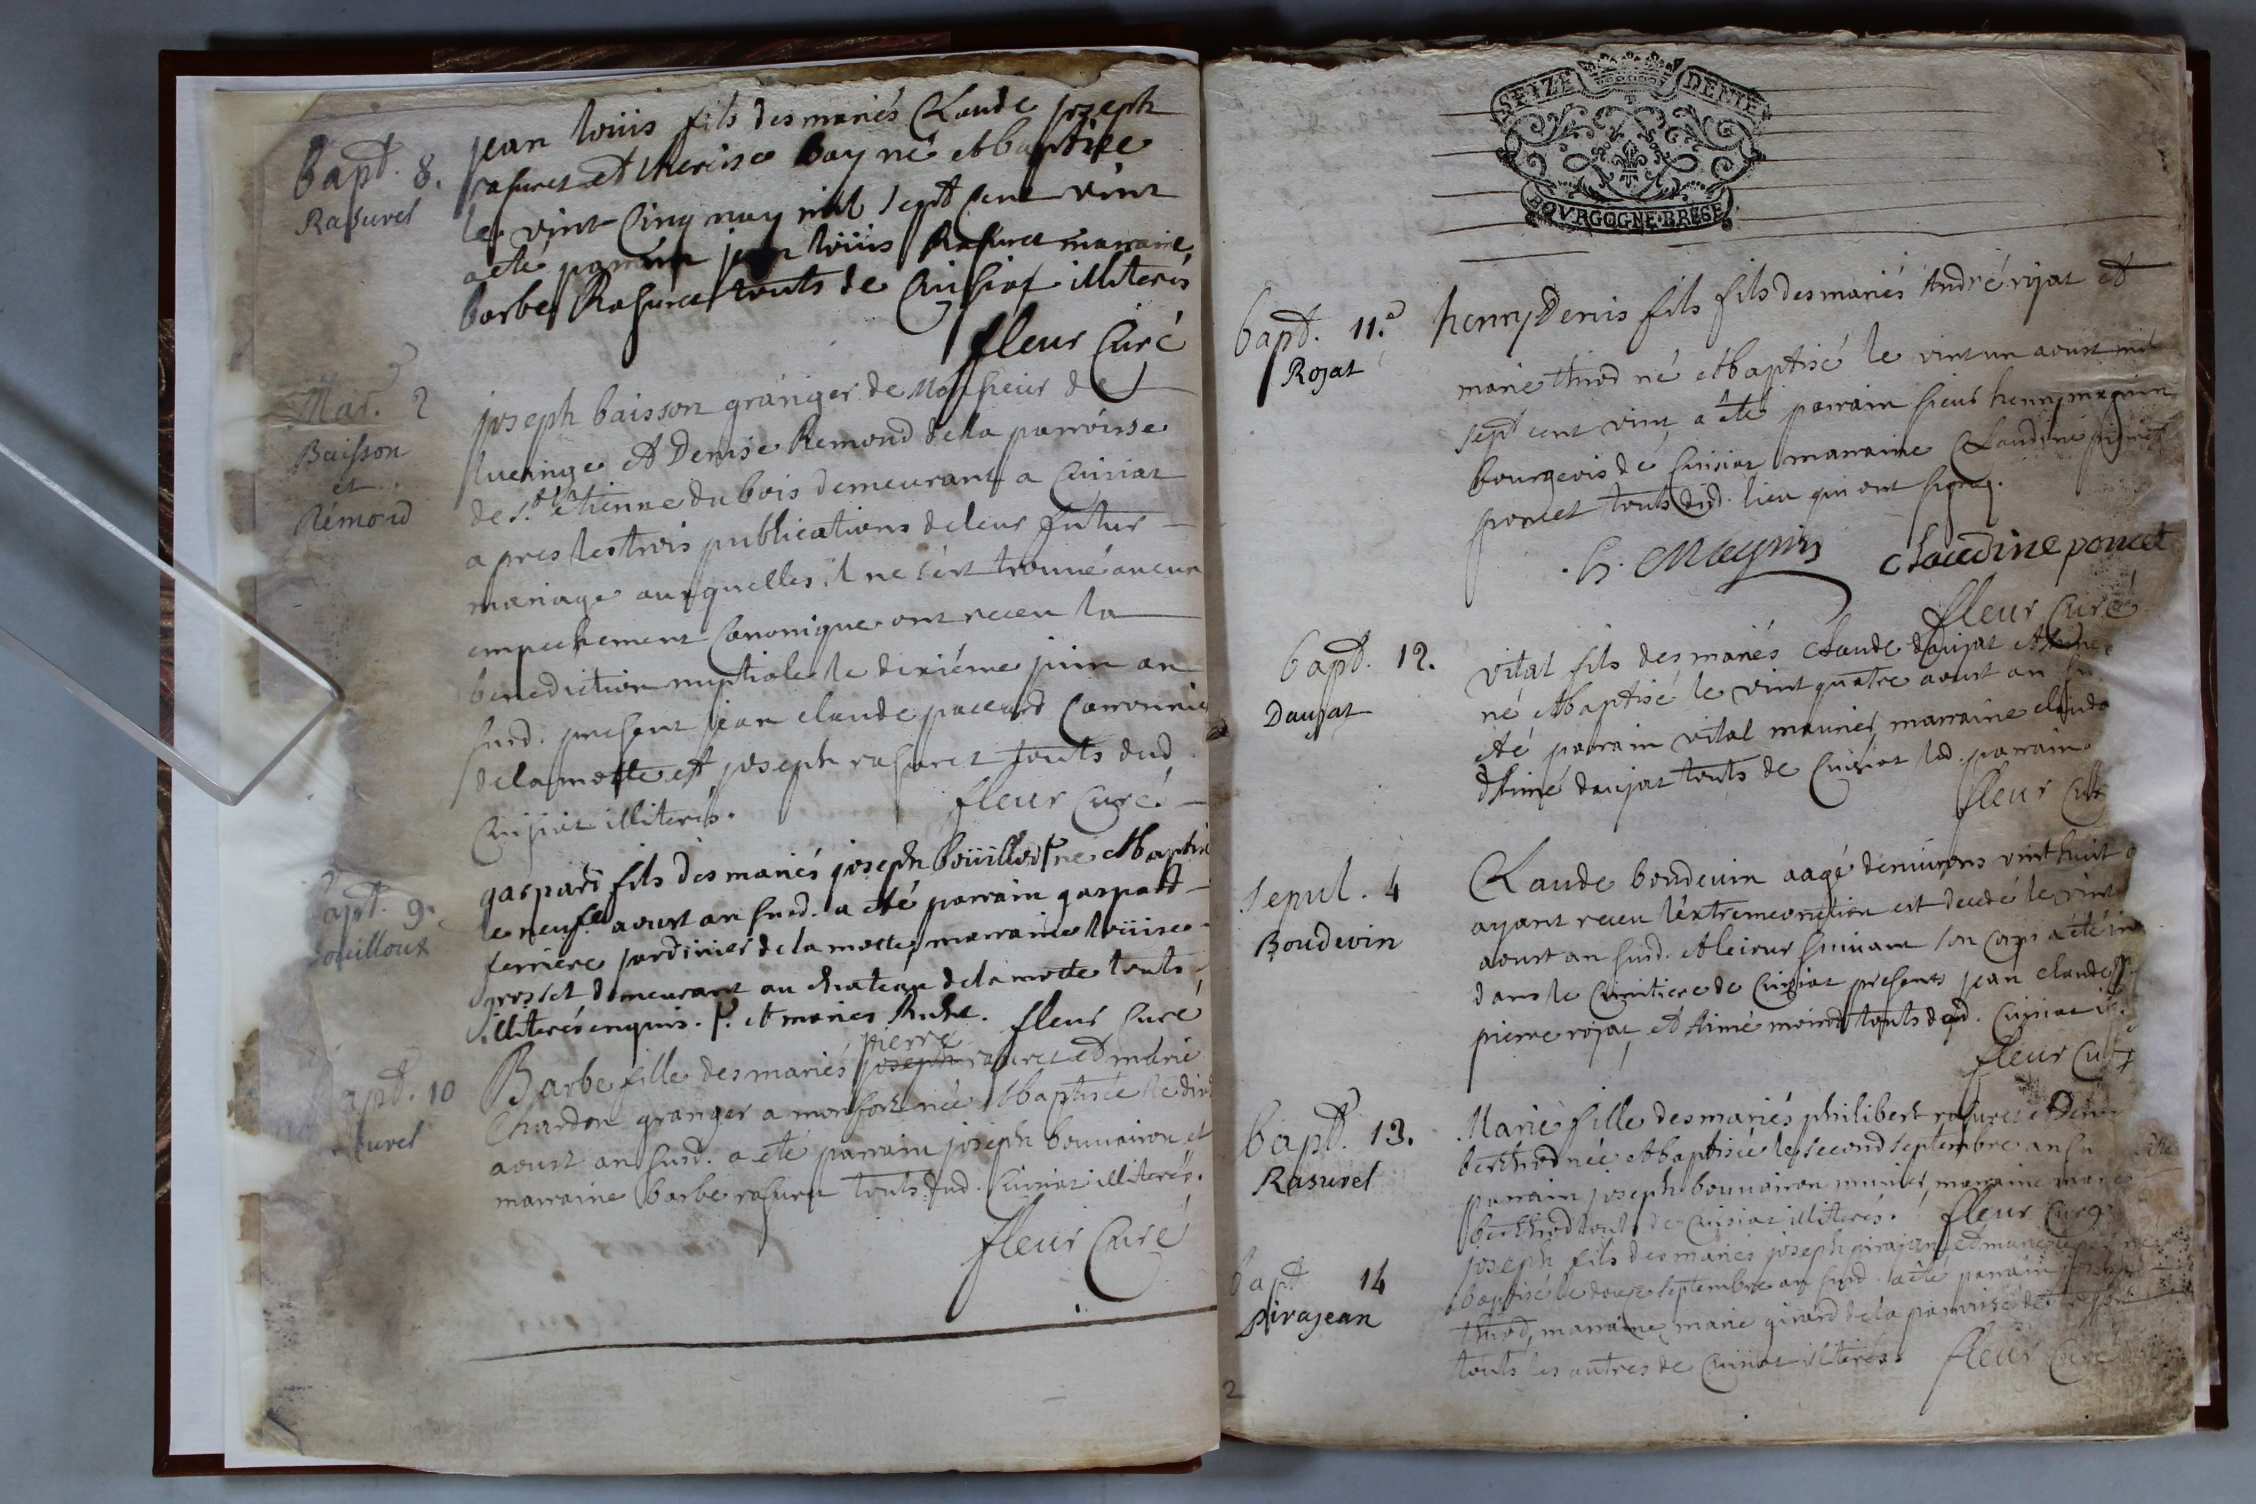 Bapt. 8.
Rasurel
jean loüis fils des mariés Claude joseph
rasurel et therese bay né et baptize
le vint cinq may mil sept cent vint
a eté parrain jean loüis Rasurel marraine
barbe Rasurel touts de Cuisiat illiterés
fleur Curé
Mar. 2
Baisson
et
Rémond
joseph baisson granger de Monsieur de
lucinge et Denise Remond de la parroisse
de st. etienne du bois demeurant a Cuisiat
apres les trois publications de leur futur
mariage auxquelles il ne s'est trouvé aucun
empechement Canonique ont receu la
benediction nuptiale le dixiéme juin an
susd. present jean claude paccard
de la motte et joseph rasurel touts dud
Cuisiat illiterés.
fleur Curé.
Bapt. 9.
bouilloux
gaspard fils des mariés joseph boüilloux né et baptisé
le neuf aoust an susd. a eté parrain gaspard
ferriere jardinier de la motte, marraine loüise
grosset demeurant au chateau de la motte touts
illiterés enquis. et maries Ruhe.
fleur Curé
Bapt. 10
surel
pierre
Barbe fille des mariés joseph rasurel et marie
Chardon granger a monfort née et baptisée le dix
aoust an susd. a eté parrain joseph bouvairon et
marraine barbe rasurel touts dud. Cuisiat illiterés.
fleur Curé
SEIZE DENIE
BOVRGOGNE·BRESE
bapt. 11.e
Rojat
henry Denis fils fils des mariés André rojat et
marie thiod né et baptisé le vint un aoust mil
sept cent vint, a été parrain sieur henry magnin
bourgeois de Cuisiat marraine Claudine
poncet touts dud. lieu qui ont signé.
h. Magnin claudine poncet
fleur Curé
bapt. 12.
Daujat
vital fils des mariés claude daujat et
né et baptisé le vint quatre aoust an
eté parrain vital maunier marraine claudine
Aimé daujat touts de Cuisiat led. parrain
fleur Cu
sepul. 4
Boudevin
Claude boudevin aagé d'environs vint huit
ayant receu l'extremeonction est decedé le vint
aoust an susd. et le iour suivant son corps a été in
dans le Cimitiere de Cuisiat presents jean claude
pierre rojat, et Aimé moirod touts dud. Cuisiat
fleur Cu
bapt. 13.
Rasurel
Marie fille des mariés philibert rasurel et Denise
berthod née et baptisée le second septembre an su
parrain joseph bouvairon munier, marraine marie
berthod touts de Cuisiat illiterés. fleur Curé
bapt 14
pirajean
joseph fils des mariés joseph pirajean et marie
baptisé le douze septembre an susd. a eté parrain
thiod, marraine marie girard de la parroisse de
touts les autres de Cuisiat illiterés. fleur Curé
2